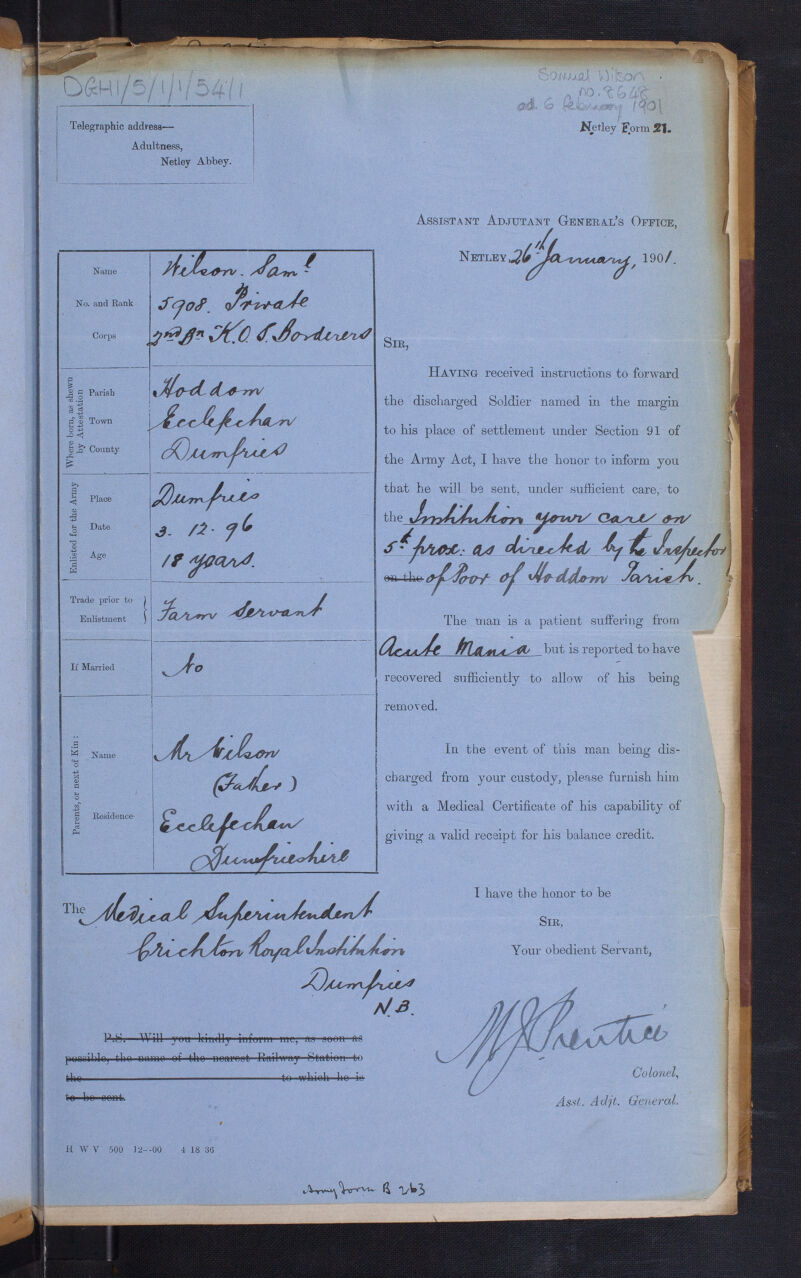 DGH1/5/1/1/54/1
Samuel Wilson
no. 8648
ad. 6 february 1901
Telegraphic address—
Adultness,
Netley Abbey.
Netley Form 21.
Assistant Adjutant General's Office,
Netley, 26th January, 1901.
Name Wilson. Saml
No. and Rank 5908. Private
Corps 2nd Bn K.O.S. Borderers
Where born, as shewn by Attestation
Parish Hoddom
Town Ecclefechan
County Dumfries
Enlisted for the Army
Place Dumfries
Date 3. 12. 96
Age 18 years.
Trade prior to Enlistment } Farm Servant
If Married No
Parents, or next of Kin:
Name Mr Wilson
(Father)
Residence Ecclefechan
Dumfrieshire
Sir,
Having received instructions to forward
the discharged Soldier named in the margin
to his place of settlement under Section 91 of
the Army Act, I have the honor to inform you
that he will be sent, under sufficient care, to
the Institution your care on
5th prox: as directed by the Inspector
on the of Poor of Hoddom Parish.
The man is a patient suffering from
Acute Mania but is reported to have
recovered sufficiently to allow of his being
removed.
In the event of this man being dis-
charged from your custody, please furnish him
with a Medical Certificate of his capability of
giving a valid receipt for his balance credit.
I have the honor to be
Sir,
Your obedient Servant,
MJ Prentice
Colonel,
Asst. Adjt. General.
The Medical Superintendent
Crichton Royal Institution
Dumfries
N.B.
P.S.—Will you kindly inform me, as soon as
possible, the name of the nearest Railway Station to
the to which he is
to be sent.
H W V 500 12--00 4 18 36
Army Form B 263